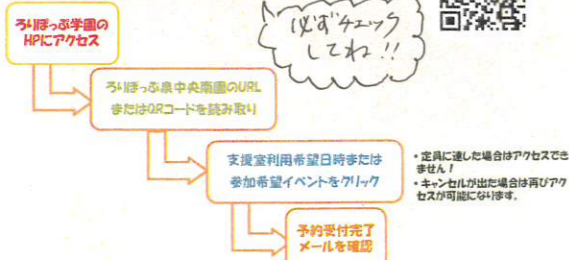 ろりぽっぷ学園の
HPにアクセス
必ずチェック
してね!!
ろりぽっぷ泉中央南園のURL
またはQRコードを読み取り
支援室利用希望日時または
参加希望イベントをクリック
・定員に達した場合はアクセスでき
ません！
・キャンセルが出た場合は再びアク
セスが可能になります。
予約受付完了
メールを確認